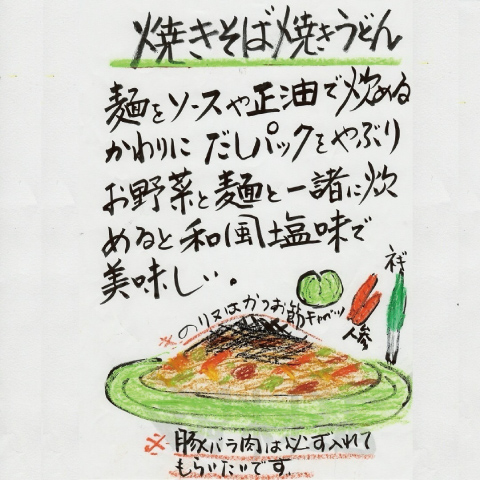 焼きそば焼きうどん
麺をソースや正油で炊める
かわりに だしパックをやぶり
お野菜と麺と一諸に炊
めると和風塩味で
美味しい。
ネギ
のり又はかつお節
キャベツ
人参
※
※ 豚バラ肉は必ず入れて
もらいたいです。